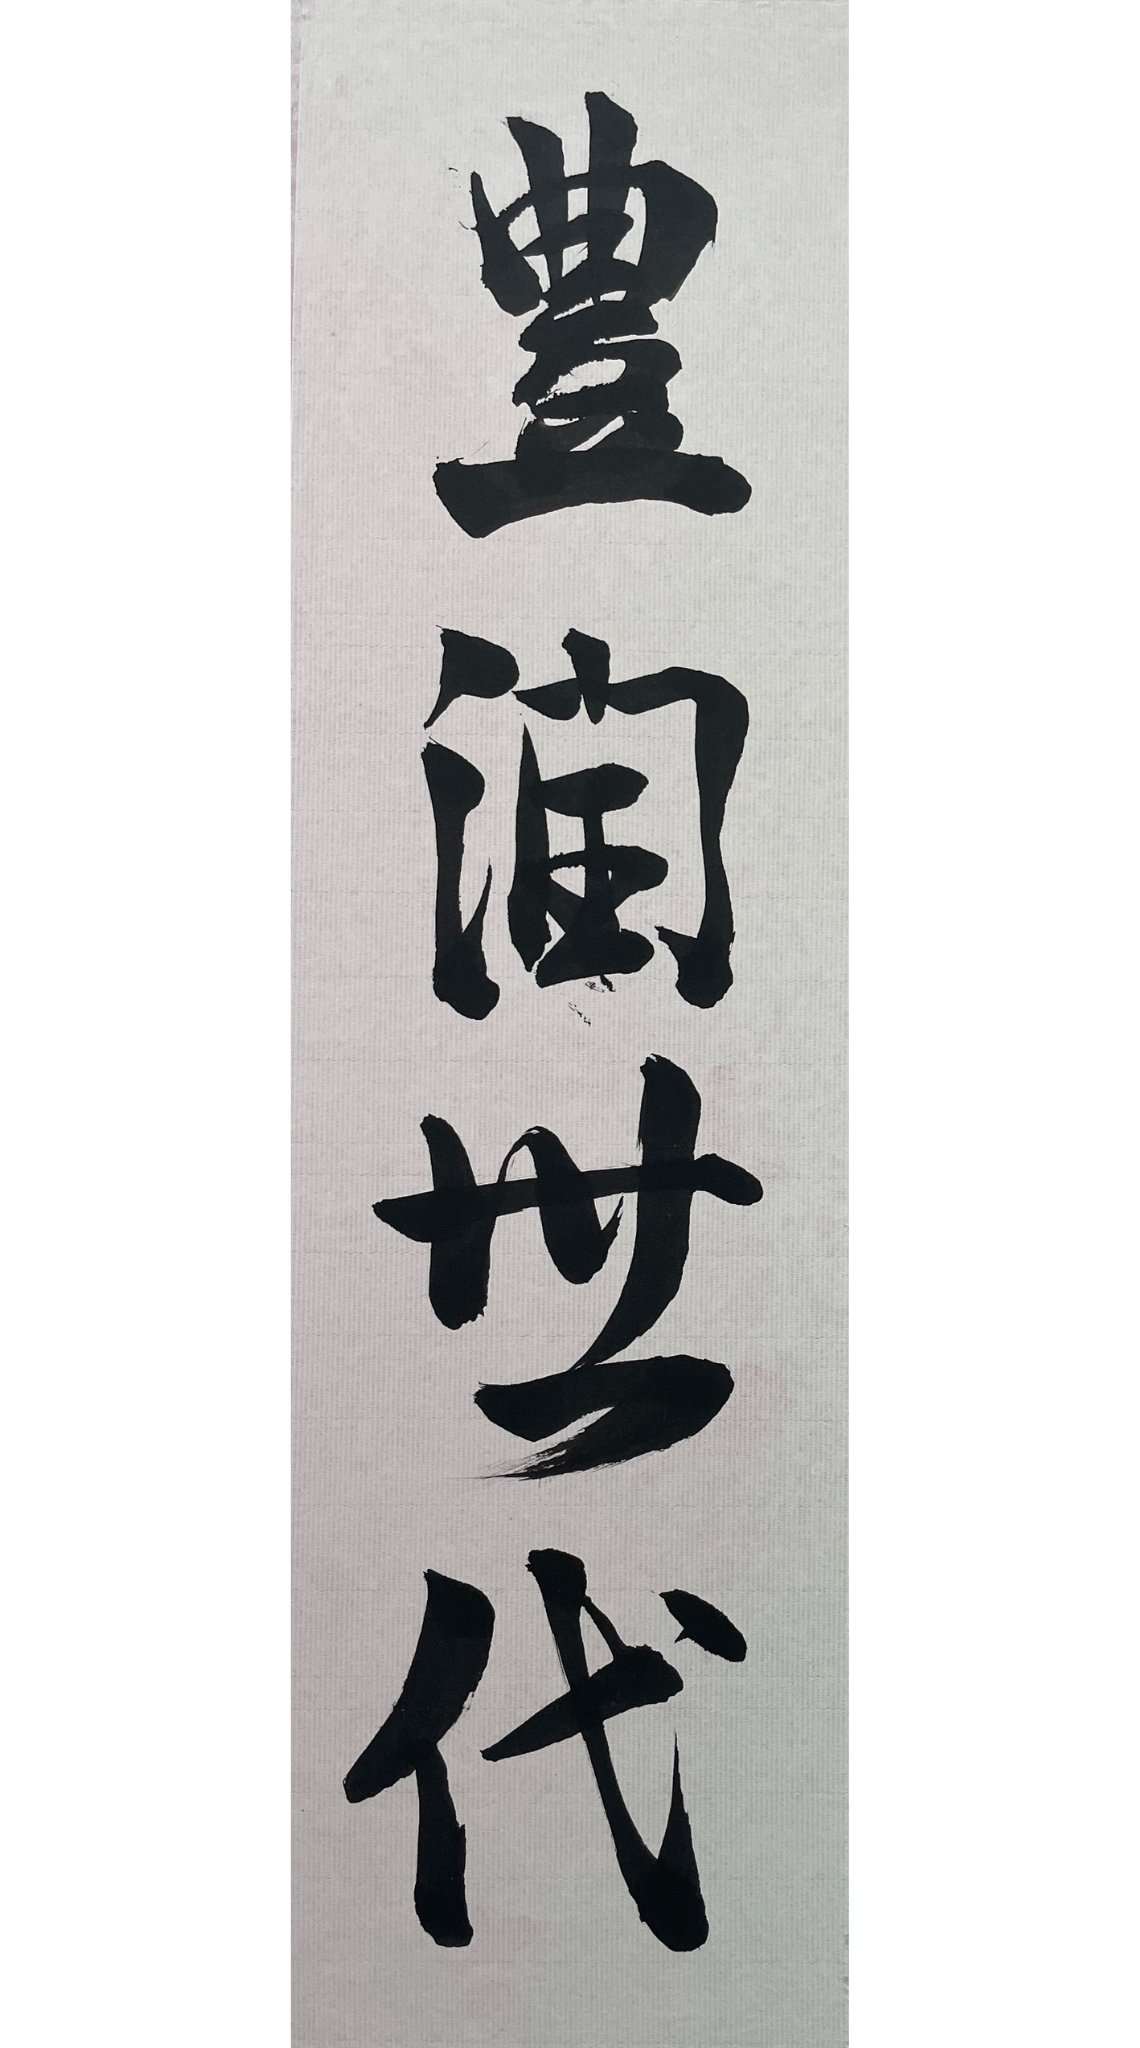 豊潤世代